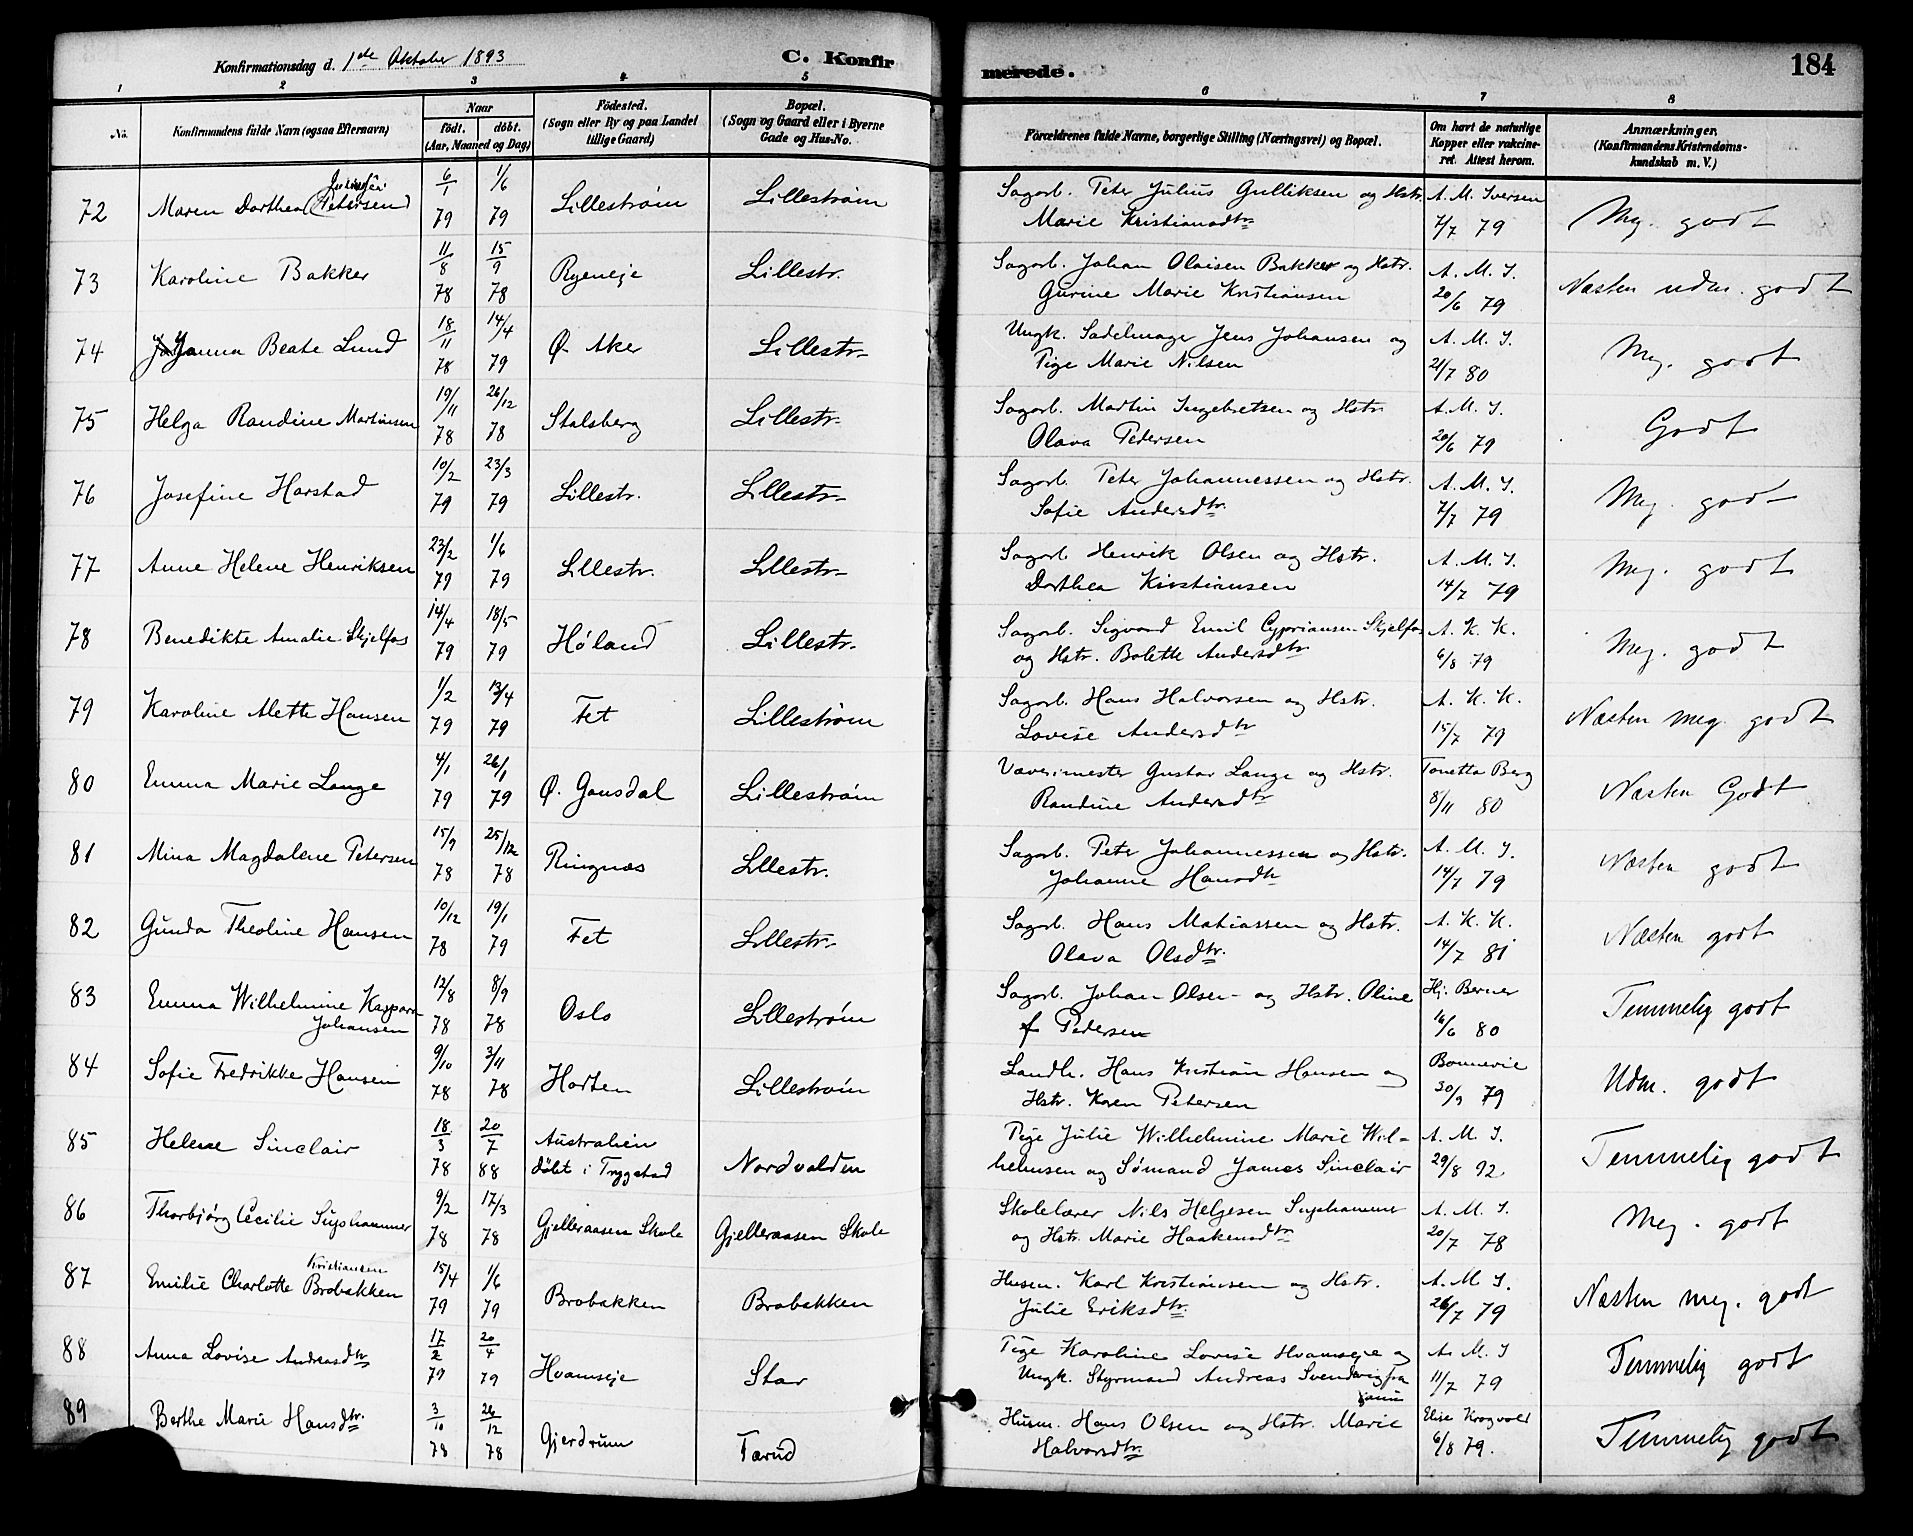 Konfirmationsdag d. 1ste Oktober 1893
C. Konfirmerede.
184
1 2 3 4 5 6 7 8
No.
Konfirmandens fulde Navn (ogsaa Efternavn)
Naar
født. døbt.
(Aar, Maaned og Dag)
Födested.
(Sogn eller By og paa Landet
tillige Gaard)
Bopæl.
(Sogn og Gaard eller i Byerne
Gade og Hus-No.
Forældrenes fulde Navne, borgerlige Stilling (Næringsvei) og Bopæl.
Om havt de naturlige
Kopper eller vakcine-
ret. Attest herom.
Anmærkninger.
(Konfirmandens Kristendoms-
kundskab m. V.)
72 Maren Dorthea (Petersen) 6/1 79 1/6 79 Lillestrøm Lillestrøm Sagarb. Peter Julius Gulliksen og Hstr. A. M. Iversen Meg. godt
Marie Kristiansdtr 7/7 79
73 Karoline Bakker 11/8 78 15/9 78 Ryeneje Lillestr. Sagarb. Johan Olaisen Bakker og Hstr. A. M. I. Næsten udm. godt
Gurine Marie Kristiansen 20/6 79
74 Janna Beate Lund 18/11 78 14/4 79 Ø. Aker Lillestr. Ungk. Sadelmager Jens Johansen og A. M. I. Meg. godt
Pige Marie Nilsen 21/7 80
75 Helga Randine Martinsen 19/11 78 26/12 78 Stalsberg Lillestr. Sagarb. Martin Ingebretsen og Hstr A. M. I. Godt
Olava Pedersen 20/6 79
76 Josefine Harstad 10/2 79 23/3 79 Lillestr. Lillestr. Sagarb. Peter Johannessen og Hstr. A. M. I. Meg. godt
Sofie Andersdtr. 7/7 79
77 Anne Helene Henriksen 23/2 79 1/6 79 Lillestr. Lillestr. Sagarb. Henrik Olsen og Hstr. A. M. I. Meg. godt
Dorthea Kristiansen 14/7 79
78 Benedikte Amalie Skjelfos 14/4 79 18/5 79 Høland Lillestr. Sagarb. Sigvard Emil Cypriansen Skjelfos A. K. K. Meg. godt
og Hstr. Bolette Andersdtr 6/8 79
79 Karoline Alette Hansen 1/2 79 13/4 79 Fet Lillestrøm Sagarb. Hans Halvorsen og Hstr. A. K. K. Næsten meg. godt
Lovise Andersdtr 15/7 79
80 Emma Marie Lange 4/1 79 26/1 79 Ø. Gausdal Lillestrøm Væverimester Gustav Lange og Hstr. Tonetta Berg Næsten Godt
Randine Andersdtr 8/11 80
81 Mina Magdalene Petersen 15/9 78 25/12 78 Ringnæs Lillestr. Sagarb. Peter Johannessen og Hstr. A. M. I. Næsten godt
Johanne Hansdtr 14/7 79
82 Gunda Theoline Hansen 10/12 78 19/1 79 Fet Lillestr. Sagarb. Hans Matiassen og Hstr. A. K. K. Næsten godt
Olava Olsdtr. 14/7 81
83 Emma Wilhelmine Kaspara 12/8 78 8/9 78 Oslo Lillestrøm Sagarb. Johan Olsen og Hstr. Oline Hj. Berner Temmelig godt
Johansen f Pedersen 16/6 80
84 Sofie Fredrikke Hansen 9/10 78 3/11 78 Horten Lillestrøm Landh. Hans Kristian Hansen og Bonnevie Udm. godt
Hstr. Karen Petersen 30/9 79
85 Helene Sinclair 18/3 78 20/7 88 Australien Nordvolden Pige Julie Wilhelmine Marie Wil- A. M. I. Temmelig godt
døbt i Trygstad helmsen og Sømand James Sinclair 29/8 92
86 Thorbjørg Cecilie Supshammer 9/2 78 17/3 78 Gjelleraasen Skole Gjelleraasen Skole Skolelærer Nils Helgesen Supshammer A. M. I. Meg. godt
og Hstr. Marie Haakensdtr 20/7 78
Kristiansen
87 Emilie Charlotte Brobakken 15/4 79 1/6 79 Brobakken Brobakken Husm. Karl Kristiansen og Hstr. A. M. I. Næsten meg. godt
Julie Eriksdtr 26/7 79
88 Anna Lovise Andreasdtr 17/2 79 20/4 79 Hvamseje Stav Pige Karoline Lovise Hvamseje og A. M. I Temmelig godt
Ungk. Styrmand Andreas Svendsvig fra 11/7 79
89 Berthe Marie Hansdtr. 3/10 78 26/12 78 Gjerdrum Tærud Husm. Hans Olsen og Hstr. Marie Elise Krogvold Temmelig godt
Halvorsdtr 6/8 79.